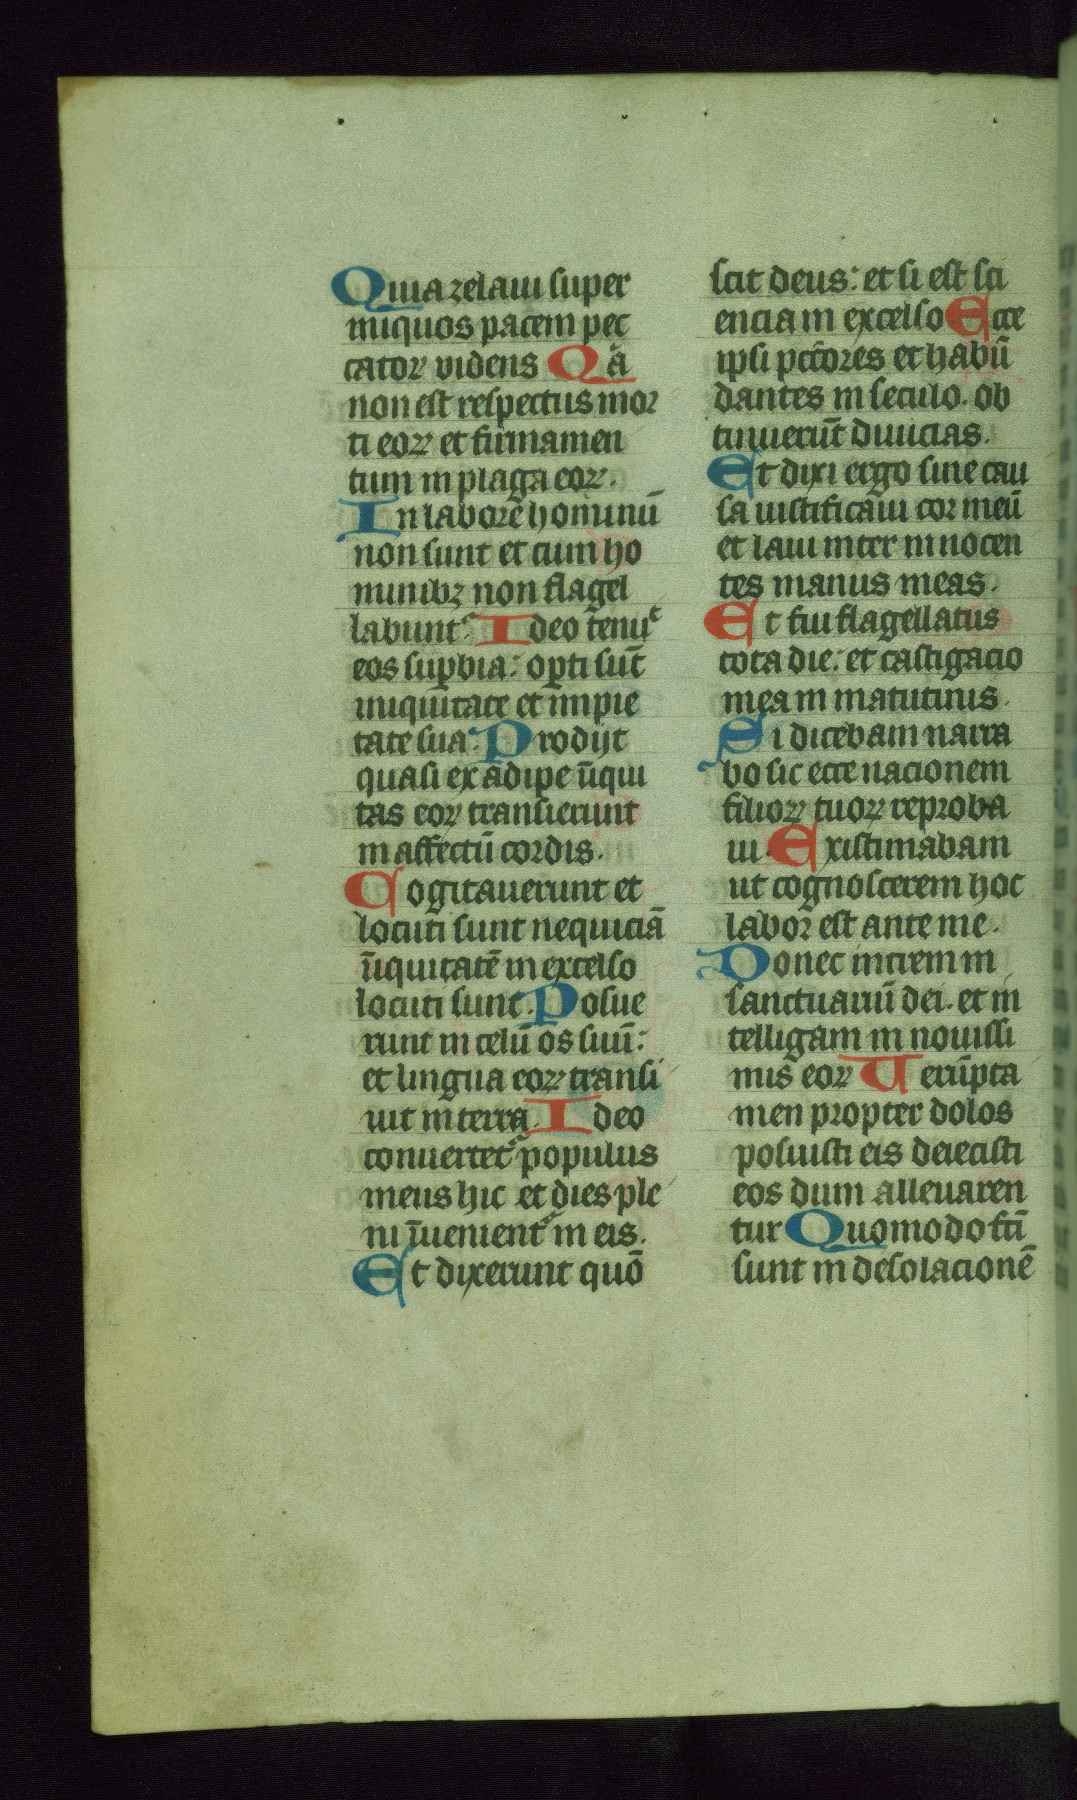 Quia zelaui super
iniquos pacem pec
catoꝝ videns Qͣa
non est respectus mor
ti eoꝝ et firmamen
tum in plaga eoꝝ.
In labore hominū
non sunt et cum ho
minibꝫ non flagel
labunt᷑ Ideo tenu͛
eos suꝑbia: oꝑti sūt
iniquitate et impie
tate sua: Prodijt
quasi ex adipe iniqui
tas eoꝝ transierunt
in affectū cordis.
Cogitauerunt et
locuti sunt nequiciā
iniquitatē in excelso
locuti sunt. Posue
runt in celū os suū:
et lingua eoꝝ transi
uit in terra. Ideo
conuertet᷑ populus
meus hic et dies ple
ni inuenient᷑ in eis.
Et dixerunt quō
scit deus: et si est sci
encia in excelso Ecce
ipsi pctōres et habū
dantes in seculo. ob
tinuerūt diuicias.
Et dixi ergo sine cau
sa iustificaui cor meū
et laui inter innocen
tes manus meas.
Et fui flagellatus
tota die: et castigacio
mea in matutinis.
Si dicebam narra
bo sic ecce nacionem
filioꝝ tuoꝝ reproba
ui. Existimabam
ut cognoscerem hoc
labor est ante me.
Donec intrem in
sanctuariū dei. et in
telligam in nouissi
mis eoꝝ Uerūpta
men propter dolos
posuisti eis deiecisti
eos dum alleuaren
tur Quomodo fcti
sunt in desolacionē